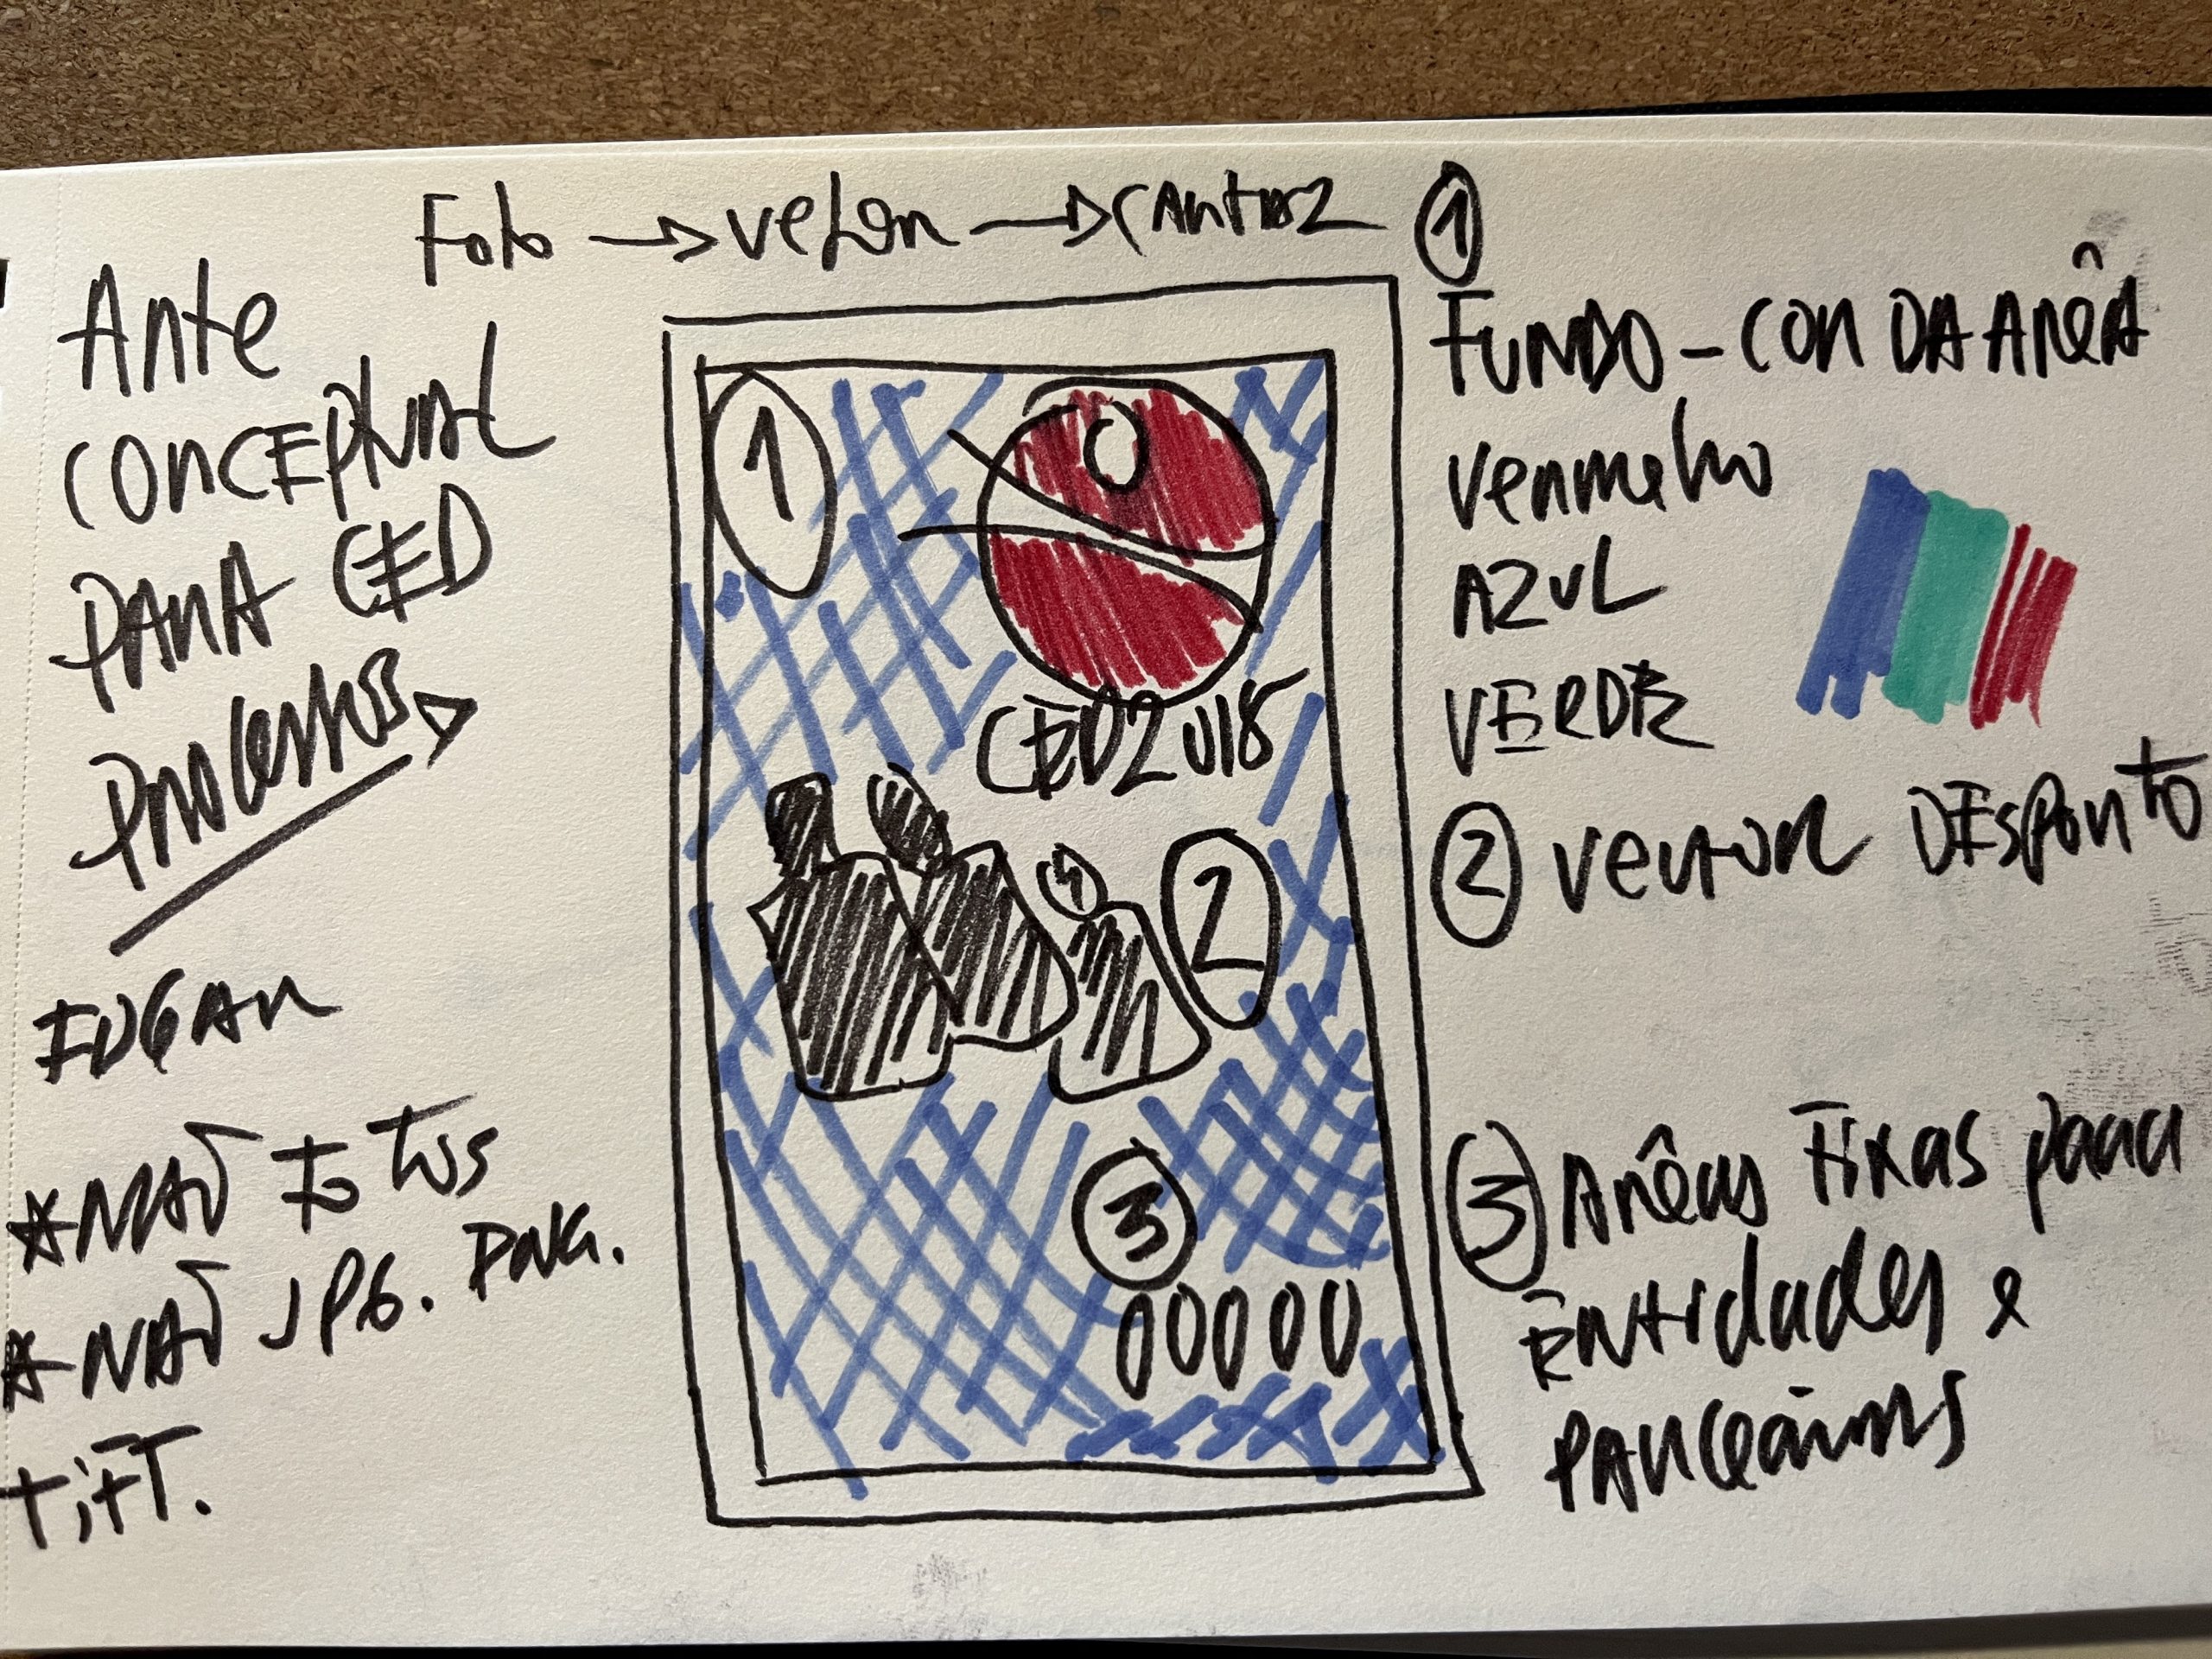 Foto → vetor → cartaz
Ante
conceptual
para CED
processos
EDGAR
*NÃO FOTOS
*NÃO JPG. PNG.
TiFF.
1
CED2018
2
3
00000
1
FUNDO - COR DA ARÊA
Vermelho
AZUL
VERDE
2 vector DESPORTO
3 Arêas Fixas para
Entidades e